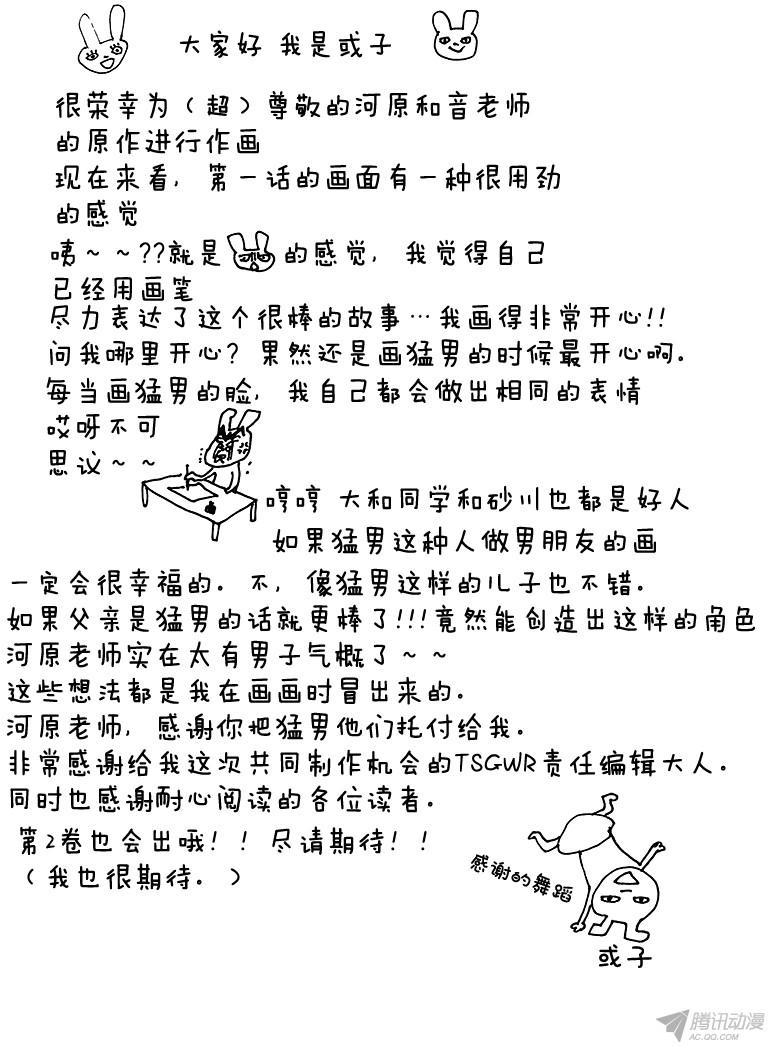 大家好 我是或子
很荣幸为（超）尊敬的河原和音老师
的原作进行作画
现在来看，第一话的画面有一种很用劲
的感觉
咦～～??就是 的感觉，我觉得自己
已经用画笔
尽力表达了这个很棒的故事…我画得非常开心!!
问我哪里开心？果然还是画猛男的时候最开心啊。
每当画猛男的脸，我自己都会做出相同的表情
哎呀不可
思议～～
哼哼 大和同学和砂川也都是好人
如果猛男这种人做男朋友的画
一定会很幸福的。不，像猛男这样的儿子也不错。
如果父亲是猛男的话就更棒了!!!竟然能创造出这样的角色
河原老师实在太有男子气概了～～
这些想法都是我在画画时冒出来的。
河原老师，感谢你把猛男他们托付给我。
非常感谢给我这次共同制作机会的TSGWR责任编辑大人。
同时也感谢耐心阅读的各位读者。
第2卷也会出哦！！尽请期待！！
（我也很期待。）
感谢的舞蹈
或子
腾讯动漫
AC.QQ.COM